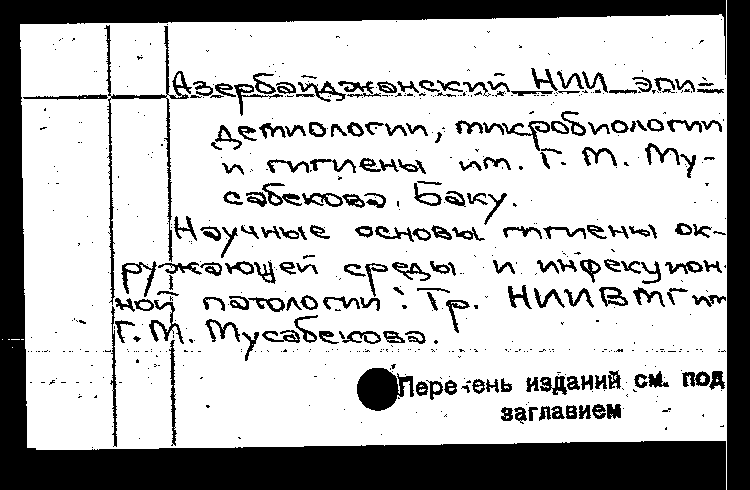 Азербайджанский НИИ эпи=
демиологии, микробиологии
и гигиены им. Г. М. Му-
сабекова. Баку.
Научные основы гигиены ок-
ружающей среды и инфекцион
ной патологии: Тр. НИИВМГ им
Г. М. Мусабекова.
Перечень изданий см. под
заглавием